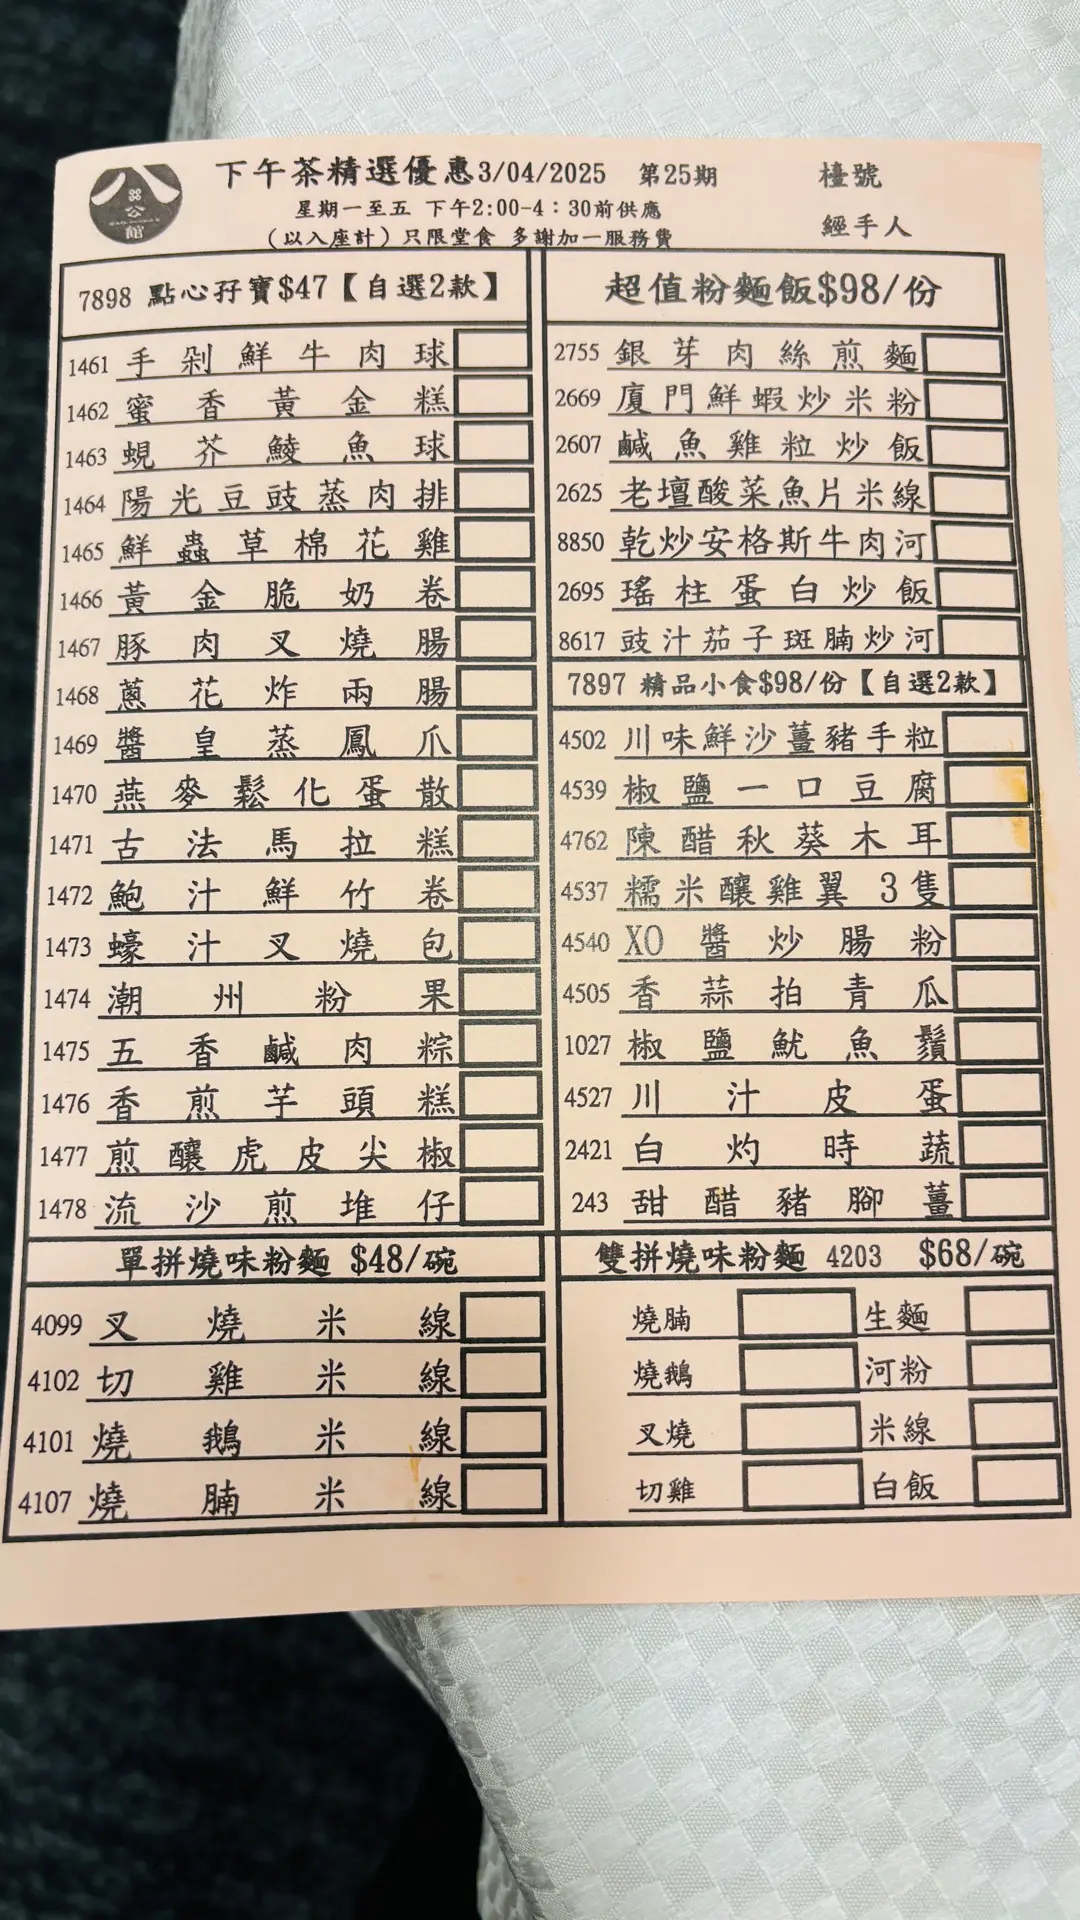 八
公
館
下午茶精選優惠3/04/2025 第25期
星期一至五 下午2:00-4：30前供應
（以入座計）只限堂食 多謝加一服務費
檯號
經手人
7898 點心孖寶$47【自選2款】
1461 手剁鮮牛肉球
1462 蜜香黃金糕
1463 蜆芥鯪魚球
1464 陽光豆豉蒸肉排
1465 鮮蟲草棉花雞
1466 黃金脆奶卷
1467 豚肉叉燒腸
1468 蔥花炸兩腸
1469 醬皇蒸鳳爪
1470 燕麥鬆化蛋散
1471 古法馬拉糕
1472 鮑汁鮮竹卷
1473 蠔汁叉燒包
1474 潮州粉果
1475 五香鹹肉粽
1476 香煎芋頭糕
1477 煎釀虎皮尖椒
1478 流沙煎堆仔
超值粉麵飯$98/份
2755 銀芽肉絲煎麵
2669 廈門鮮蝦炒米粉
2607 鹹魚雞粒炒飯
2625 老壇酸菜魚片米線
8850 乾炒安格斯牛肉河
2695 瑤柱蛋白炒飯
8617 豉汁茄子斑腩炒河
7897 精品小食$98/份【自選2款】
4502 川味鮮沙薑豬手粒
4539 椒鹽一口豆腐
4762 陳醋秋葵木耳
4537 糯米釀雞翼 3隻
4540 XO醬炒腸粉
4505 香蒜拍青瓜
1027 椒鹽魷魚鬚
4527 川汁皮蛋
2421 白灼時蔬
243 甜醋豬腳薑
單拼燒味粉麵 $48/碗
4099 叉燒米線
4102 切雞米線
4101 燒鵝米線
4107 燒腩米線
雙拼燒味粉麵 4203 $68/碗
燒腩 生麵
燒鵝 河粉
叉燒 米線
切雞 白飯